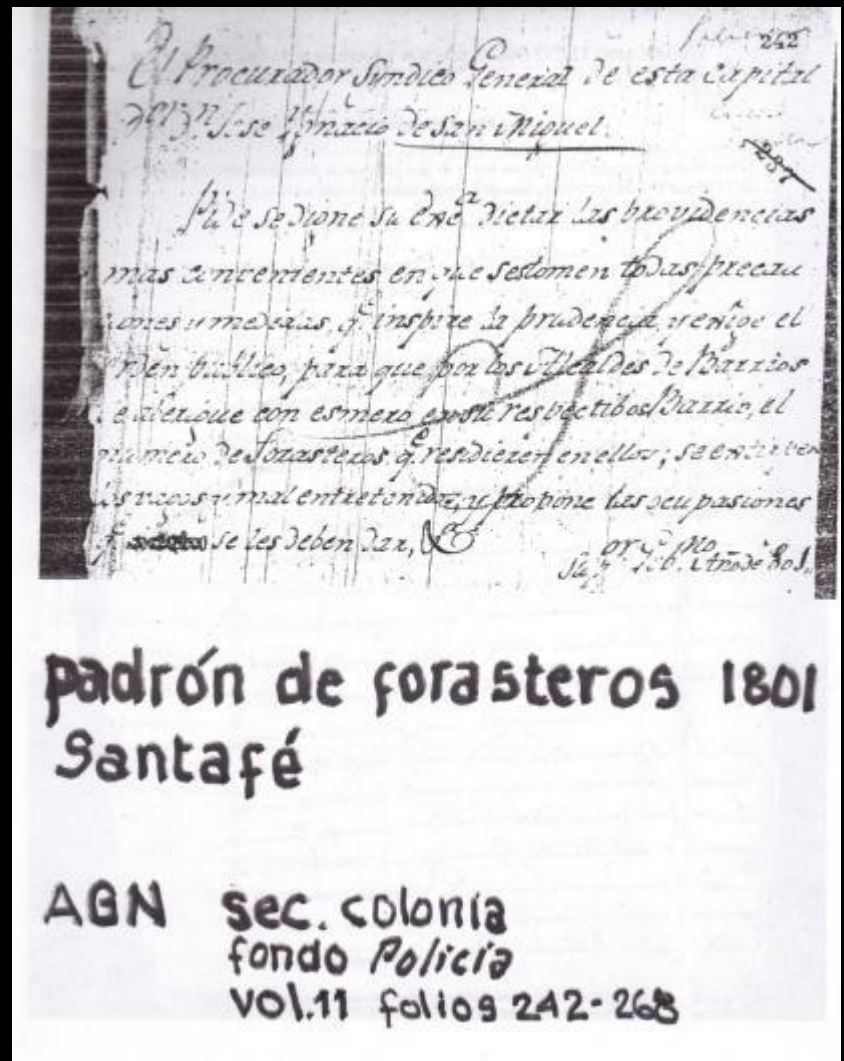 242
El Procurador Sindico General de esta Capital
Dn Jose Ygnacio de San Miguel.
237
Pide se digne su Exca dictar las providencias
mas convenientes en que se tomen todas precau
ciones y medidas, q. inspire la prudencia, y exige el
orden publico, para que por los Alcaldes de Barrios
se aberigue con esmero en su respectibos Barrio, el
numero de forasteros qe residieren en ellos; se
los vagos y mal entretenidos, y propone las ocupasiones
q se les deben dar,
Año de 801.
padrón de forasteros 1801
Santafé
AGN sec. colonia
fondo Policía
Vol.11 folios 242-268